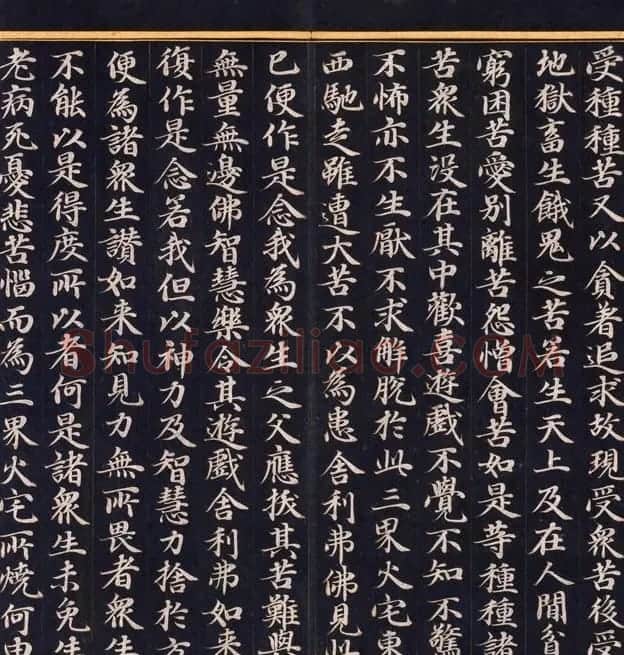 受種種苦又以貪著追求故現受眾苦後受
地獄畜生餓鬼之苦若生天上及在人間貧
窮困苦愛別離苦怨憎會苦如是等種種諸
苦眾生没在其中歡喜遊戲不覺不知不驚
不怖亦不生厭不求解脫於此三界火宅東
西馳走雖遭大苦不以為患舍利弗佛見此
已便作是念我為眾生之父應拔其苦難與
無量無邊佛智慧樂令其遊戲舍利弗如来
復作是念若我但以神力及智慧力捨於方
便為諸眾生讚如来知見力無所畏者眾生
不能以是得度所以者何是諸眾生未免生
老病死憂悲苦惱而為三界火宅所燒何由
Shufaziliao.COM